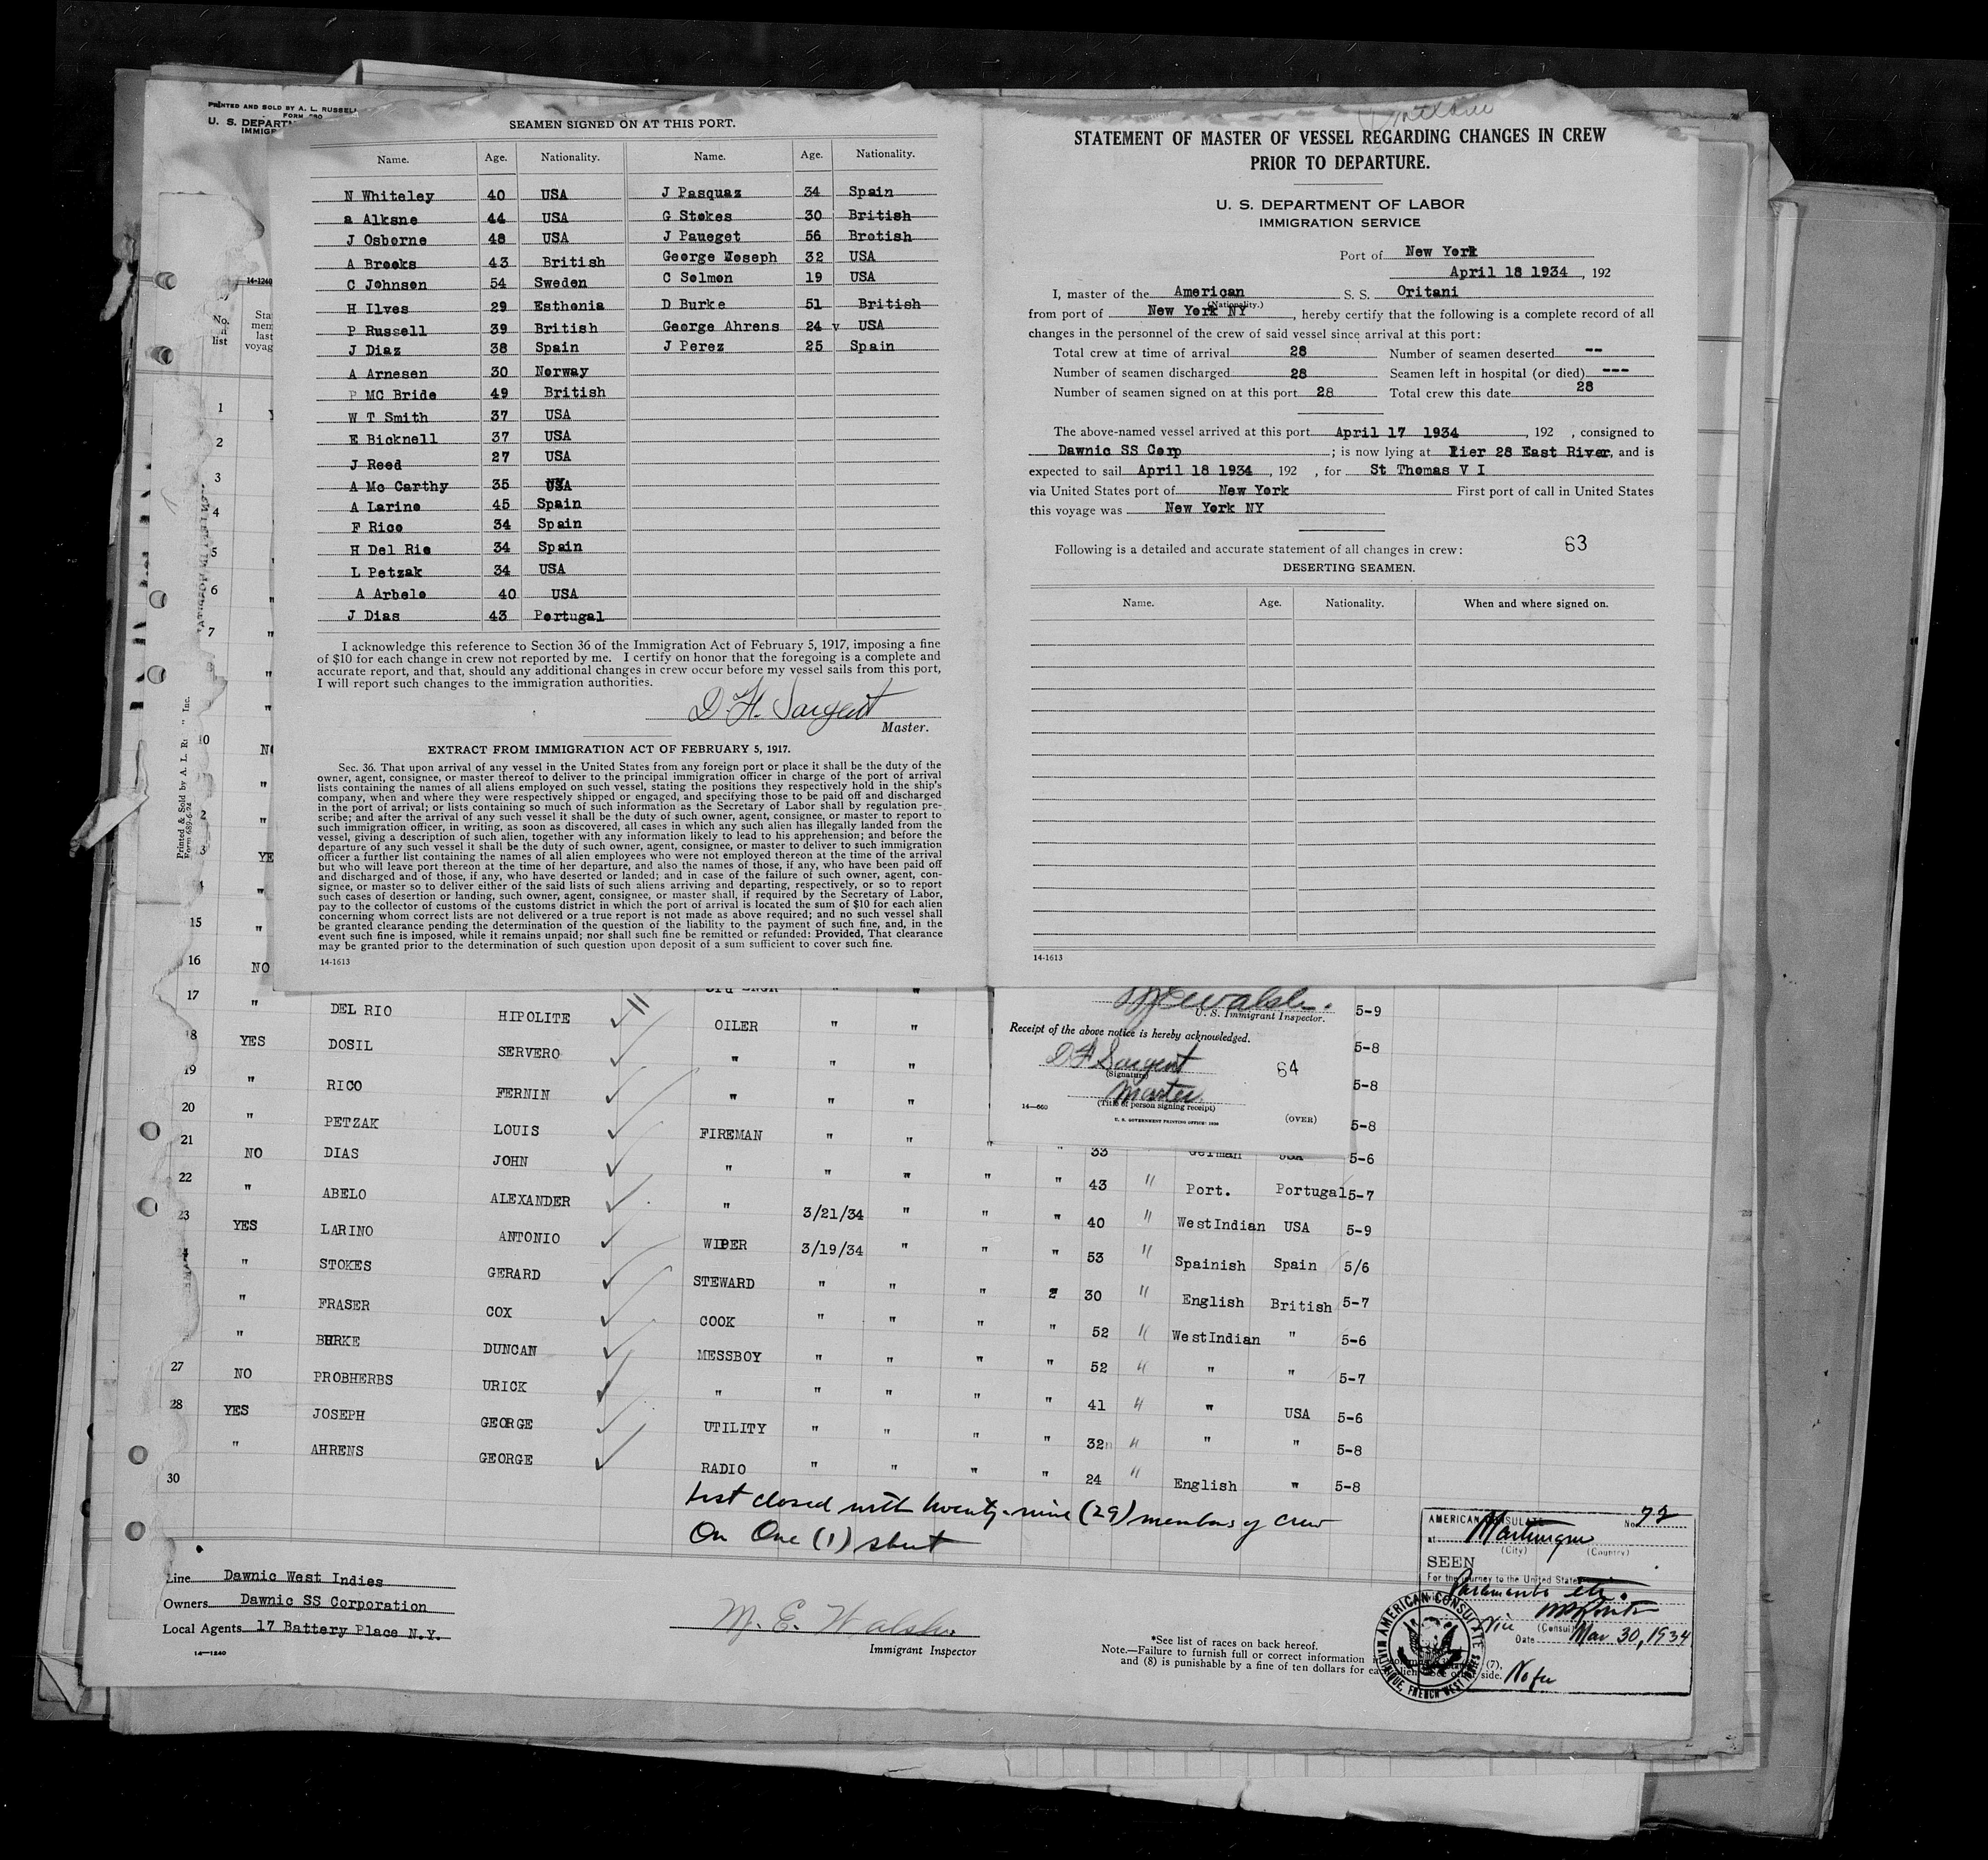 PRINTED AND SOLD BY A. L. RUSSELL
FORM
U. S. DEPARTM
IMMIGR
14-1240
No. on list
Sta mem last voyag
SEAMEN SIGNED ON AT THIS PORT.
Name. Age. Nationality. Name. Age. Nationality.
N Whiteley 40 USA J Pasquaz 34 Spain
a Alksne 44 USA G Stokes 30 British
J Osborne 48 USA J Paueget 56 Brotish
A Brooks 43 British George Joseph 32 USA
C Johnson 54 Sweden C Solmon 19 USA
H Ilves 29 Esthonia D Burke 51 British
P Russell 39 British George Ahrens 24 v USA
J Diaz 38 Spain J Perez 25 Spain
A Arnesen 30 Norway
P MC Bride 49 British
W T Smith 37 USA
E Bicknell 37 USA
J Reed 27 USA
A Mc Carthy 35 USA
A Larino 45 Spain
F Rico 34 Spain
H Del Rie 34 Spain
L Petzak 34 USA
A Arbelo 40 USA
J Dias 43 Portugal
I acknowledge this reference to Section 36 of the Immigration Act of February 5, 1917, imposing a fine
of $10 for each change in crew not reported by me. I certify on honor that the foregoing is a complete and
accurate report, and that, should any additional changes in crew occur before my vessel sails from this port,
I will report such changes to the immigration authorities.
D. H. Sargent
Master.
EXTRACT FROM IMMIGRATION ACT OF FEBRUARY 5, 1917.
Sec. 36. That upon arrival of any vessel in the United States from any foreign port or place it shall be the duty of the
owner, agent, consignee, or master thereof to deliver to the principal immigration officer in charge of the port of arrival
lists containing the names of all aliens employed on such vessel, stating the positions they respectively hold in the ship's
company, when and where they were respectively shipped or engaged, and specifying those to be paid off and discharged
in the port of arrival; or lists containing so much of such information as the Secretary of Labor shall by regulation pre-
scribe; and after the arrival of any such vessel it shall be the duty of such owner, agent, consignee, or master to report to
such immigration officer, in writing, as soon as discovered, all cases in which any such alien has illegally landed from the
vessel, giving a description of such alien, together with any information likely to lead to his apprehension; and before the
departure of any such vessel it shall be the duty of such owner, agent, consignee, or master to deliver to such immigration
officer a further list containing the names of all alien employees who were not employed thereon at the time of the arrival
but who will leave port thereon at the time of her departure, and also the names of those, if any, who have been paid off
and discharged and of those, if any, who have deserted or landed; and in case of the failure of such owner, agent, con-
signee, or master so to deliver either of the said lists of such aliens arriving and departing, respectively, or so to report
such cases of desertion or landing, such owner, agent, consignee, or master shall, if required by the Secretary of Labor,
pay to the collector of customs of the customs district in which the port of arrival is located the sum of $10 for each alien
concerning whom correct lists are not delivered or a true report is not made as above required; and no such vessel shall
be granted clearance pending the determination of the question of the liability to the payment of such fine, and, in the
event such fine is imposed, while it remains unpaid; nor shall such fine be remitted or refunded: Provided, That clearance
may be granted prior to the determination of such question upon deposit of a sum sufficient to cover such fine.
14-1613
STATEMENT OF MASTER OF VESSEL REGARDING CHANGES IN CREW
PRIOR TO DEPARTURE.
U. S. DEPARTMENT OF LABOR
IMMIGRATION SERVICE
Port of New York
April 18 1934, 192
I, master of the American S. S. Oritani
(Nationality.)
from port of New York NY, hereby certify that the following is a complete record of all
changes in the personnel of the crew of said vessel since arrival at this port:
Total crew at time of arrival 28 Number of seamen deserted --
Number of seamen discharged 28 Seamen left in hospital (or died) ---
Number of seamen signed on at this port 28 Total crew this date 28
The above-named vessel arrived at this port April 17 1934, 192 , consigned to
Dawnic SS Corp; is now lying at Pier 28 East River, and is
expected to sail April 18 1934, 192 , for St Thomas V I
via United States port of New York First port of call in United States
this voyage was New York NY
Following is a detailed and accurate statement of all changes in crew: 63
DESERTING SEAMEN.
Name. Age. Nationality. When and where signed on.
14-1613
U. S. Immigrant Inspector.
Receipt of the above notice is hereby acknowledged.
D H Sargent
(Signature)
64
Master
(Title of person signing receipt)
14-660
U. S. GOVERNMENT PRINTING OFFICE
(OVER)
Printed & Sold by A. L. Inc.
Form 689-6-24
17 " DEL RIO HIPOLITE OILER " " 5-9
18 YES DOSIL SERVERO " " " 5-8
19 " RICO FERNIN " " " 5-8
20 " PETZAK LOUIS FIREMAN " " 5-8
21 NO DIAS JOHN " " " " " 33 German USA 5-6
22 " ABELO ALEXANDER " 3/21/34 " " " 43 " Port. Portugal 5-7
23 YES LARINO ANTONIO WIPER 3/19/34 " " " 40 " WestIndian USA 5-9
" STOKES GERARD STEWARD " " " " 53 " Spainish Spain 5/6
" FRASER COX COOK " " " " 30 " English British 5-7
" BURKE DUNCAN MESSBOY " " " " 52 " WestIndian " 5-6
27 NO PROBHERBS URICK " " " " " 52 " " " 5-7
28 YES JOSEPH GEORGE UTILITY " " " " 41 " " USA 5-6
" AHRENS GEORGE RADIO " " " " 32 " " " 5-8
30 24 " English " 5-8
List closed with twenty-nine (29) members of crew
On One (1) sheet
Line Dawnic West Indies
Owners Dawnic SS Corporation
Local Agents 17 Battery Place N.Y.
14-1240
M. E. Walsh
Immigrant Inspector
*See list of races on back hereof.
Note.—Failure to furnish full or correct information
and (8) is punishable by a fine of ten dollars for each alien. See other side.
AMERICAN CONSULATE No. 72
at Martinique
(City) (Country)
SEEN
For the journey to the United States
Vice (Consul)
Date Mar 30, 1934
No fee
AMERICAN CONSULATE
MARTINIQUE, FRENCH WEST INDIES